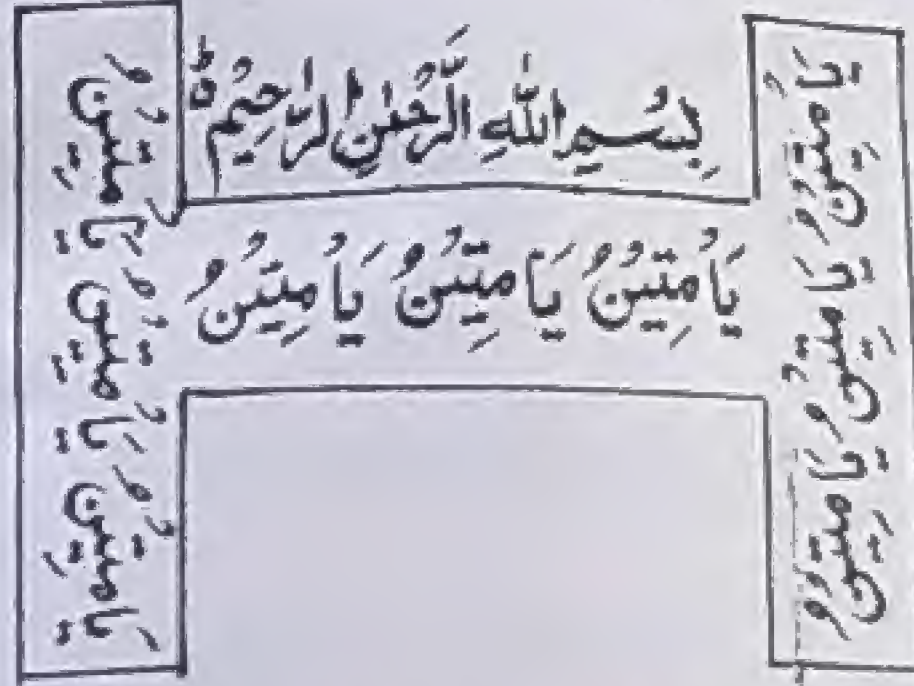 بِسْمِ اللّٰهِ الرَّحْمٰنِ الرَّاحِيْمِ
يَا مَتِيْنُ يَا مَتِيْنُ يَا مَتِيْنُ
يَا مِتَيْنُ يَا مِتِيْنُ يَا مِتِيْنُ
يَا مَتِيْنُ يَا مَتِيْنُ يَا مَتِيْنُ